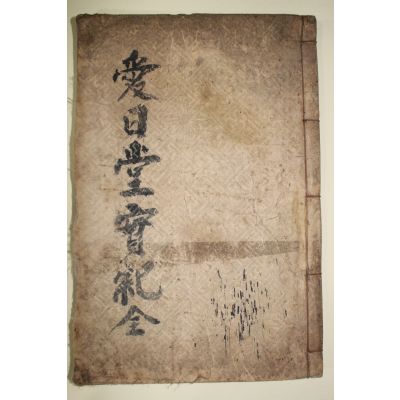 愛日堂實紀全